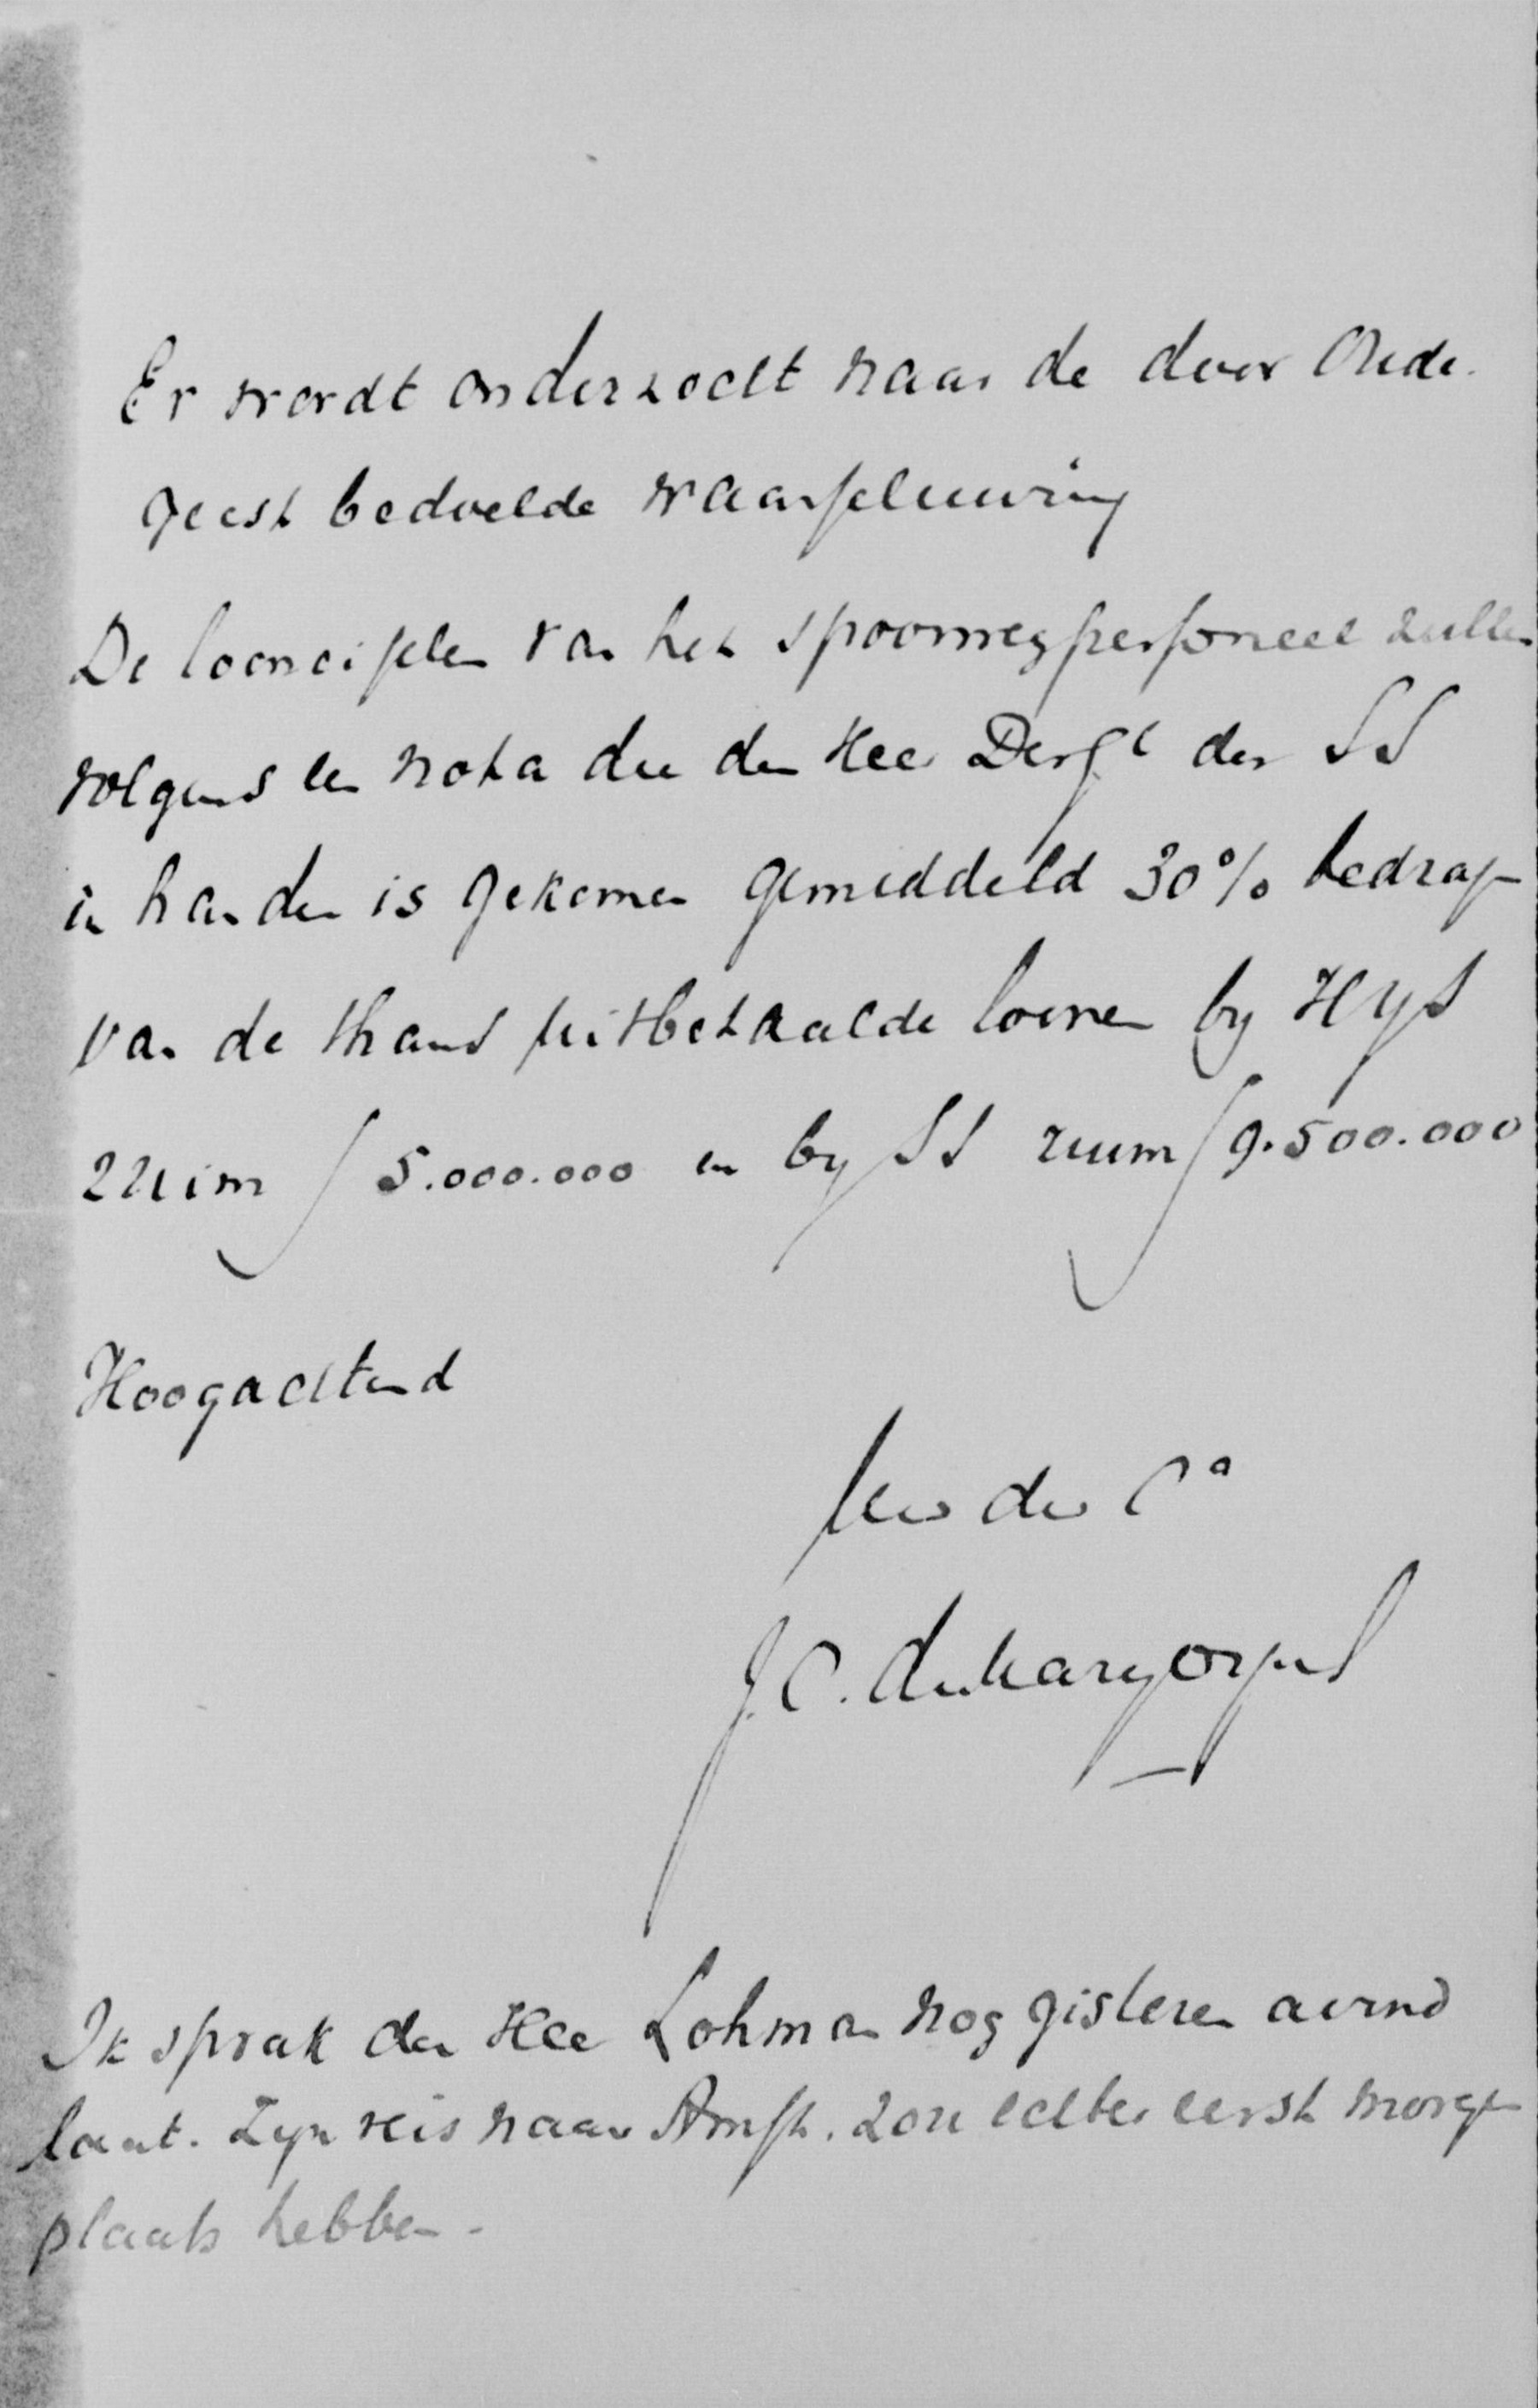 Er wordt onderzocht naar de door Oude-
geest bedoelde waarschuwing
De looneischen van het spoorwegpersoneel zullen
volgens een nota die den Heer Dir Gl der SS
in handen is gekomen gemiddeld 30% bedragen
van de thans uitbetaalde loonen by HYS
ruim ƒ 5.000.000 en by SS ruim ƒ 9.500.000
Hoogachtend
de Ca
J.C.
Ik sprak den Heer Lohman nog gisteren avond
laat. Zyn reis naar Amst. zou echter eerst morgen
plaats hebben.